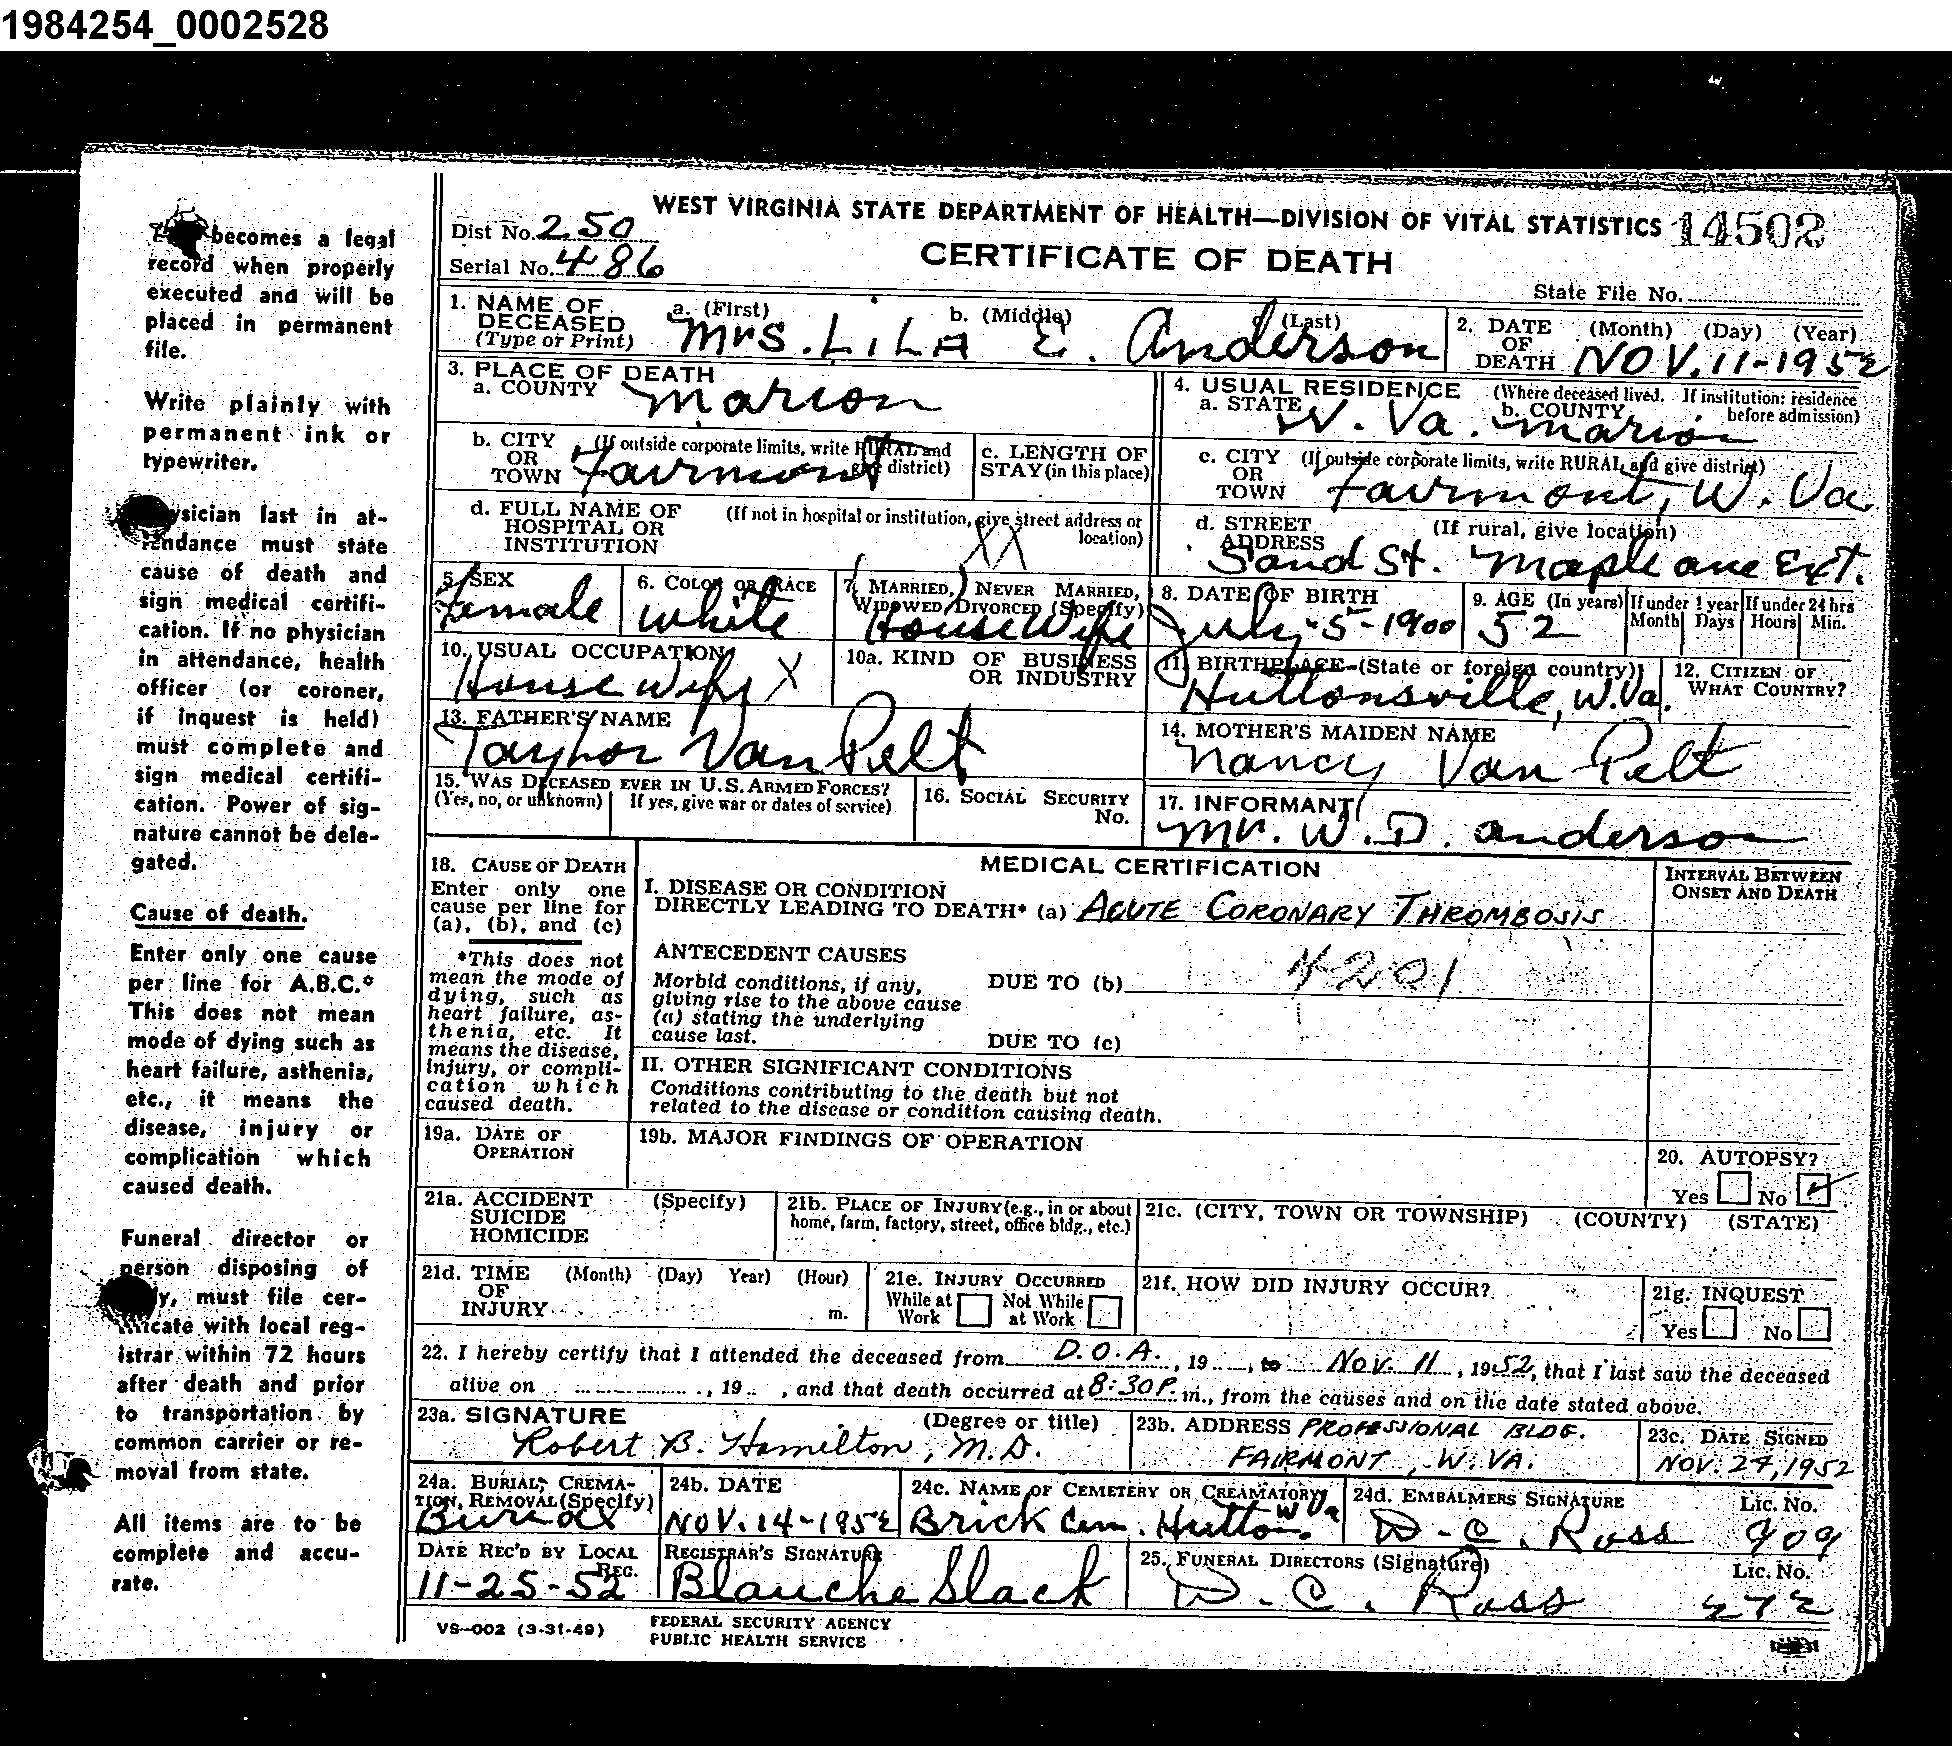 1984254_0002528
becomes a legal
record when properly
executed and will be
placed in permanent
file.
Write plainly with
permanent ink or
typewriter.
sician last in at-
tendance must state
cause of death and
sign medical certifi-
cation. If no physician
in attendance, health
officer (or coroner,
if inquest is held)
must complete and
sign medical certifi-
cation. Power of sig-
nature cannot be dele-
gated.
Cause of death.
Enter only one cause
per line for A.B.C.*
This does not mean
mode of dying such as
heart failure, asthenia,
etc., it means the
disease, injury or
complication which
caused death.
Funeral director or
person disposing of
must file cer-
tificate with local reg-
istrar within 72 hours
after death and prior
to transportation by
common carrier or re-
moval from state.
All items are to be
complete and accu-
rate.
WEST VIRGINIA STATE DEPARTMENT OF HEALTH—DIVISION OF VITAL STATISTICS 14502
Dist No. 250
CERTIFICATE OF DEATH
Serial No. 486
State File No.
1. NAME OF DECEASED (Type or Print) a. (First) b. (Middle) c. (Last)
Mrs. LiLA E. Anderson
2. DATE OF DEATH (Month) (Day) (Year)
NOV. 11-1952
3. PLACE OF DEATH
a. COUNTY Marion
4. USUAL RESIDENCE (Where deceased lived. If institution: residence before admission)
a. STATE W. Va. b. COUNTY Marion
b. CITY OR TOWN (If outside corporate limits, write RURAL and give district)
Fairmont
c. LENGTH OF STAY (in this place)
c. CITY OR TOWN (If outside corporate limits, write RURAL and give district)
Fairmont, W. Va
d. FULL NAME OF HOSPITAL OR INSTITUTION (If not in hospital or institution, give street address or location)
XX
d. STREET ADDRESS (If rural, give location)
Sand St. Maple ave Ext.
5. SEX
female
6. COLOR OR RACE
white
7. MARRIED, NEVER MARRIED, WIDOWED, DIVORCED (Specify)
House Wife
8. DATE OF BIRTH
July-5-1900
9. AGE (In years) If under 1 year Month Days If under 24 hrs Hours Min.
52
10. USUAL OCCUPATION
House wife X
10a. KIND OF BUSINESS OR INDUSTRY
11. BIRTHPLACE (State or foreign country)
Huttonsville, W.Va.
12. CITIZEN OF WHAT COUNTRY?
13. FATHER'S NAME
Taylor Van Pelt
14. MOTHER'S MAIDEN NAME
Nancy Van Pelt
15. WAS DECEASED EVER IN U.S. ARMED FORCES?
(Yes, no, or unknown) If yes, give war or dates of service)
16. SOCIAL SECURITY No.
17. INFORMANT
Mr. W. D. anderson
18. CAUSE OF DEATH
Enter only one
cause per line for
(a), (b), and (c)
*This does not
mean the mode of
dying, such as
heart failure, as-
thenia, etc. It
means the disease,
injury, or compli-
cation which
caused death.
MEDICAL CERTIFICATION
INTERVAL BETWEEN ONSET AND DEATH
I. DISEASE OR CONDITION
DIRECTLY LEADING TO DEATH* (a) ACUTE CORONARY THROMBOSIS
ANTECEDENT CAUSES
Morbid conditions, if any,
giving rise to the above cause
(a) stating the underlying
cause last.
DUE TO (b) 4201
DUE TO (c)
II. OTHER SIGNIFICANT CONDITIONS
Conditions contributing to the death but not
related to the disease or condition causing death.
19a. DATE OF OPERATION
19b. MAJOR FINDINGS OF OPERATION
20. AUTOPSY?
Yes No ✓
21a. ACCIDENT SUICIDE HOMICIDE (Specify)
21b. PLACE OF INJURY (e.g., in or about home, farm, factory, street, office bldg., etc.)
21c. (CITY, TOWN OR TOWNSHIP) (COUNTY) (STATE)
21d. TIME OF INJURY (Month) (Day) Year) (Hour) m.
21e. INJURY OCCURRED
While at Work Not While at Work
21f. HOW DID INJURY OCCUR?
21g. INQUEST
Yes No
22. I hereby certify that I attended the deceased from D.O.A., 19 , to Nov. 11, 1952, that I last saw the deceased
alive on , 19 , and that death occurred at 8:30 P. m., from the causes and on the date stated above.
23a. SIGNATURE (Degree or title)
Robert B. Hamilton, M.D.
23b. ADDRESS PROFESSIONAL BLDG.
FAIRMONT, W. VA.
23c. DATE SIGNED
NOV. 24, 1952
24a. BURIAL, CREMATION, REMOVAL (Specify)
Burial
24b. DATE
NOV. 14-1952
24c. NAME OF CEMETERY OR CREAMATORY
Brick Cem. Hutton. W Va
24d. EMBALMERS SIGNATURE Lic. No.
D. C. Ross 909
DATE REC'D BY LOCAL REG.
11-25-52
REGISTRAR'S SIGNATURE
Blanche Slack
25. FUNERAL DIRECTORS (Signature) Lic. No.
D. C. Ross 272
VS-002 (3-31-49)
FEDERAL SECURITY AGENCY
PUBLIC HEALTH SERVICE